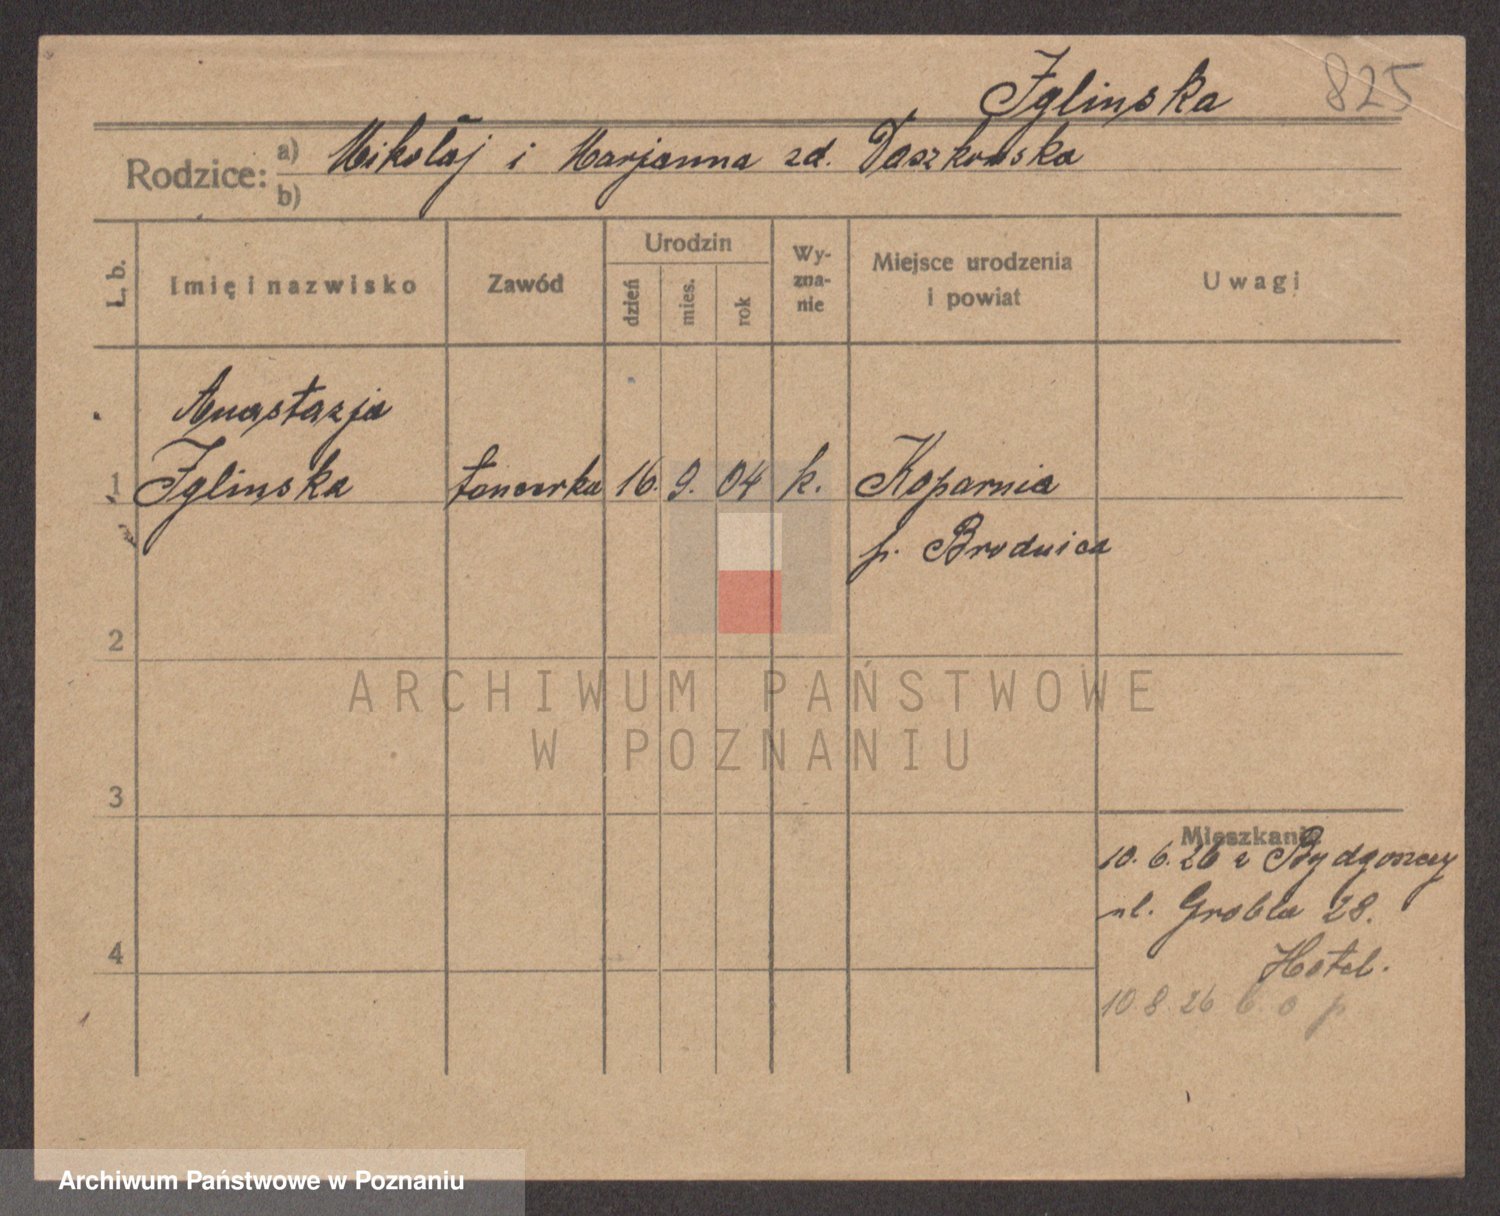 Iglinska 825
Rodzice: a) Mikołaj i Marjanna zd. Daszkowska
b)
L. b. Imię i nazwisko Zawód Urodzin dzień mies. rok Wy-zna-nie Miejsce urodzenia i powiat Uwagi
Anastazja
1 Iglinska tancerka 16. 9. 04 k. Koparnia
p. Brodnica
2
ARCHIWUM PAŃSTWOWE
W POZNANIU
3
Mieszkanie
10. 6. 26 z Bydgoszczy
ul. Grobla 28.
4
Hotel.
10. 8. 26 b. o p
Archiwum Państwowe w Poznaniu